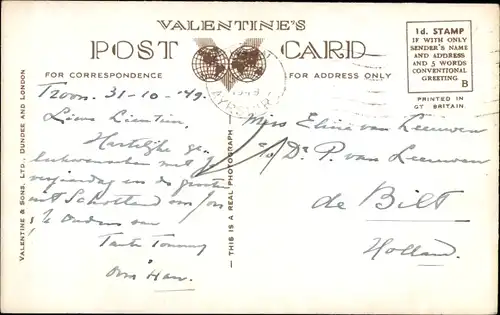 VALENTINE'S
POST CARD
FOR CORRESPONDENCE
FOR ADDRESS ONLY
1d. STAMP
IF WITH ONLY
SENDER'S NAME
AND ADDRESS
AND 5 WORDS
CONVENTIONAL
GREETING.
B
PRINTED IN
GT BRITAIN.
VALENTINE & SONS, LTD., DUNDEE AND LONDON
THIS IS A REAL PHOTOGRAPH
Troon. 31-10-'49.
Lieve
Hartelijke ge-
lukwenschen met je
verjaardag en de groeten
uit Schotland van
Ouders van
Tante
Oom Han
Miss Eline van Leeuwen
c/o Dr. P. van Leeuwen
de Bilt
Holland.